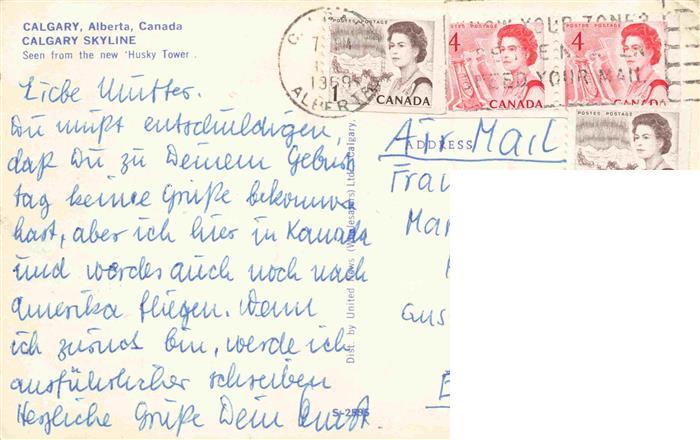 CALGARY, Alberta, Canada
CALGARY SKYLINE
Seen from the new 'Husky Tower'.
Liebe Mutter.
Du mußt entschuldigen,
daß Du zu Deinem Geburts
tag keine Grüße bekommen
hast, aber ich hier in Kanada
und werde auch noch nach
Amerika fliegen. Wenn
ich zurück bin, werde ich
ausführlicher schreiben
Herzliche Grüße Dein
S-2595
Dist. by United News (Wholesalers) Ltd., Calgary,
POSTES POSTAGE
1
CANADA
POSTES POSTAGE
4
CANADA
POSTES POSTAGE
4
CANADA
POSTES POSTAGE
1969
ALBERTA
YOUR ZONE?
SPEED YOUR MAIL
ADDRESS
Air Mail
Frau
Mar
Gus